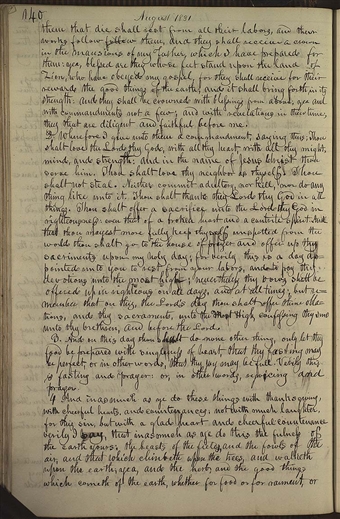 140
August 1831.
them that die shall rest from all their labors, and their
works follow them, and they shall receive a crown
in the mansions of my Father, which I have prepared for
them: yea, blessed are they whose feet stand upon the land of
Zion, who have obeyed my gospel, for they shall receive for their
rewards the good things of the earth; and it shall bring forth in its
strength: And they shall be crowned with blessings from above; yea and
with commandments not a few; and with revelations in their time,
they that are diligent and faithful before me.
2 Wherefore I give unto them a commandment, saying thus: Thou
shalt love the Lord thy God, with all thy heart, with all thy might,
mind, and strength: and in the name of Jesus Christ thou
serve him. Thou shalt love thy neighbor as thyself. Thou
shalt not steal. Neither commit adultery, nor kill, nor do any
thing like unto it. Thou shalt thank the Lord thy God in all
things. Thou shalt offer a sacrifice unto the Lord thy God in
righteousness even that of a broken heart and a contrite Spirit. And
that thou mayest more fully keep thyself unspotted from the
world thou shalt go to the house of prayer and offer up thy
sacraments upon my holy day; for verily this is a day ap-
pointed unto you to rest from your labors, and to pay thy
devotions unto the most high; nevertheless thy vows shall be
offered up in righteousness on all days, and at all times; but re-
member that on this, the Lord's day thou shalt offer thine obla-
tions, and thy sacraments, unto the Most High, confessing thy sins
unto thy brethren, and before the Lord.
3. And on this day thou shalt do none other thing, only let thy
food be prepared with singleness of heart, that thy fasting may
be perfect; or in other words, that thy joy may be full. Verily this
is fasting and prayer: or, in other words, rejoicing and
prayer.
4 And inasmuch as ye do these things with thanksgiving,
with cheerful hearts, and countenances; not with much laughter,
for this is sin, but with a glad heart and cheerful countenance
verily I say, that inasmuch as ye do this the fulness of
the Earth is yours: the beasts of the fields, and the fowls of the
air, and that which climbeth upon the trees, and walketh
upon the earth; yea, and the herb, and the good things
which cometh of the earth, whether for food or for raiment, or